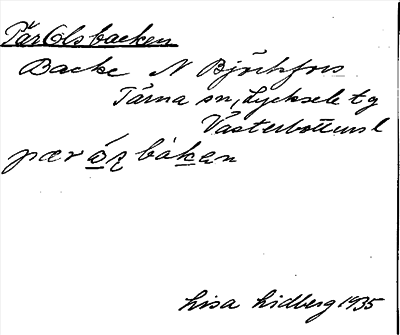 PärOlsbacken
Backe N Björkfors
Tärna sn, Lycksele tg
Västerbottens l
pær óʂ bàkan
Lisa Lidberg 1935